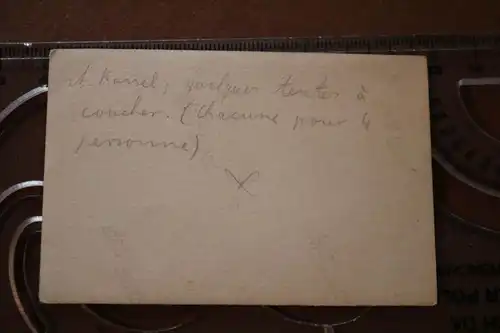 A Kassel, quelques tentes à
coucher. (Chacune pour 4
personne)